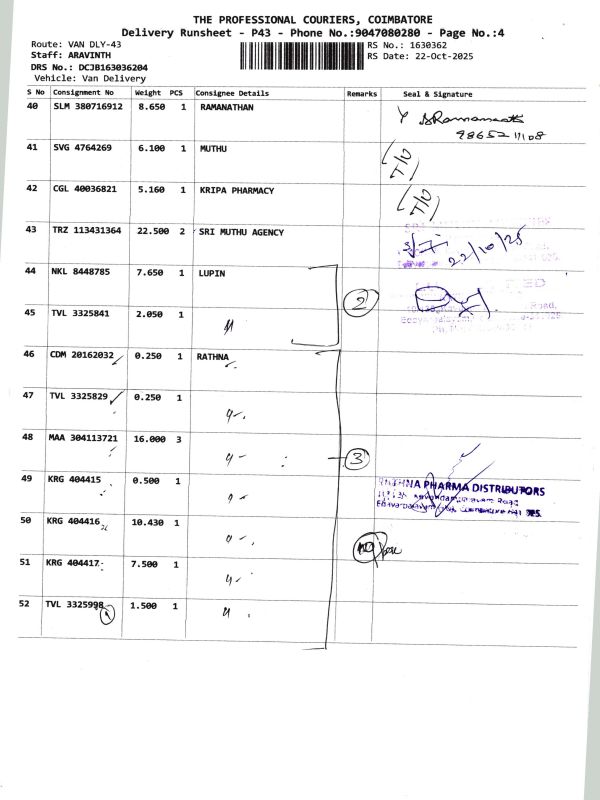 THE PROFESSIONAL COURIERS, COIMBATORE
Delivery Runsheet - P43 - Phone No.:9047080280 - Page No.:4
Route: VAN DLY-43 RS No.: 1630362
Staff: ARAVINTH RS Date: 22-Oct-2025
DRS No.: DCJB163036204
Vehicle: Van Delivery
S No Consignment No Weight PCS Consignee Details Remarks Seal & Signature
40 SLM 380716912 8.650 1 RAMANATHAN
41 SVG 4764269 6.100 1 MUTHU (T/U)
42 CGL 40036821 5.160 1 KRIPA PHARMACY (T/U)
43 TRZ 113431364 22.500 2 SRI MUTHU AGENCY 22/10/25
44 NKL 8448785 7.650 1 LUPIN
2
45 TVL 3325841 2.050 1 "
46 CDM 20162032 0.250 1 RATHNA
47 TVL 3325829 0.250 1 "
48 MAA 304113721 16.000 3 "
3
49 KRG 404415 0.500 1 "
PHARMA DISTRIBUTORS
50 KRG 404416 10.430 1 "
51 KRG 404417 7.500 1 "
52 TVL 3325998 1.500 1 "